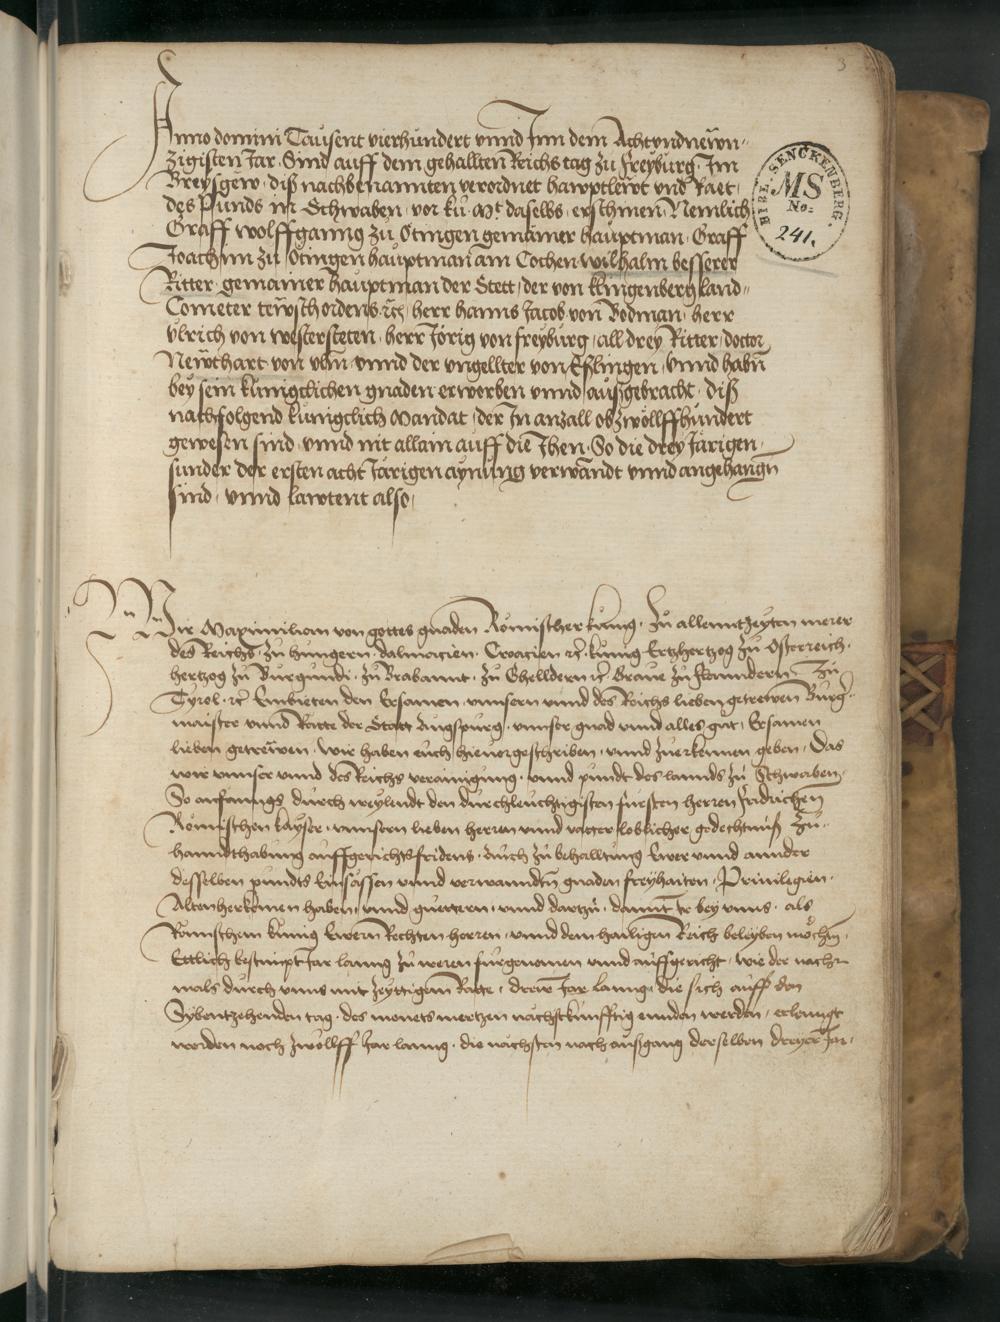 3
Anno domini Tausent vierhundert vnnd Jnn dem Achtvndnewn-
zigisten Jar. Sind auff dem gehallten Reichs tag zu freyburg. Jm
Breysgew. diß nachbenannten verordnet hawptlewt vnd Raet.
des Punds in Schwaben. vor ku. Mt. daselbs. erschinen Nemlich
Graff wolffganng zu Otingen gemainer hauptman. Graff
Joachim zu Otingen hauptman am Cochen wilhalm besserer
Ritter gemainer hauptman der Stett, der von klingenberg land-
Cometer tewtsch ordens. rc. herr hanns Jacob von Bodman. herr
vlrich von westersteten. herr Jörig von freyburg. all drey Ritter. doctor
Neythart von vlm vnnd der vngellter von Esslingen. vnnd habn
bey sein kuniglichen gnaden erworben vnnd außgebracht. diß
nachfolgend kuniglich Mandat. der Jn anzall ob zwöllffhundert
gewesen sind. vnnd nit allain auff die Jhen. So die drey Järigen.
sunder der ersten acht Järigen aynung verwandt vnnd angehangn
sind. vnnd lawtent also.
Wir Maximilian von gottes gnaden Römischer kunig. zu allenntzeyten merer
des Reichs. zu hungern. dalmacien. Croacien rc. kunig Ertzhertzog zu Osterreich.
hertzog zu Burgundi. zu Brabannt. zu Ghelldern rc. Graue zu flanndern. zu
Tyrol. rc. Embieten den Ersamen. vnnsern vnnd des Reichs lieben getrewen Burg-
maister vnnd Ratte der Statt Augspurg. vnnser gnad vnnd alles gut. Ersamen
lieben getrewen. wir haben euch hieuorgeschriben. vnnd zuerkennen geben. Das
wir vnnser vnnd des Reichs verainigung. vnnd pundt des lannds zu Schwaben.
So anfanngs durch weylendt den durchleuchtigisten fursten herren fridrichen
Römischen kayser. vnnsern lieben herren vnnd vatter loblicher gedechtnuß zu
hanndthabung auffgerichts fridens. auch zu behalltung Ewer vnnd annder
desselben pundts Einsässen vnnd verwanndtn gnaden freyhaiten. Priuilegien.
Altenherkomen haben. vnnd guettern. vnnd dartzu. damit Jr bey vnns. als
Römischem kunig Ewerm Rechten herren. vnnd dem hailigen Reich beleyben möchtn.
Ettlich bestimpt Jar lanng zu weren furgenomen vnnd auffgericht. wie der nach-
mals durch vnns mit zeyttigem Ratte. drew Jar lanng. die sich auff den
Sybentzehenden tag. des monets mertzen nachstkunfftig ennden werden. erlenngt
worden noch zwölff Jar lanng. die nachsten nach außgang derselben dreyer Jar.
BIBL. SENCKENBERG.
MS
No:
241.